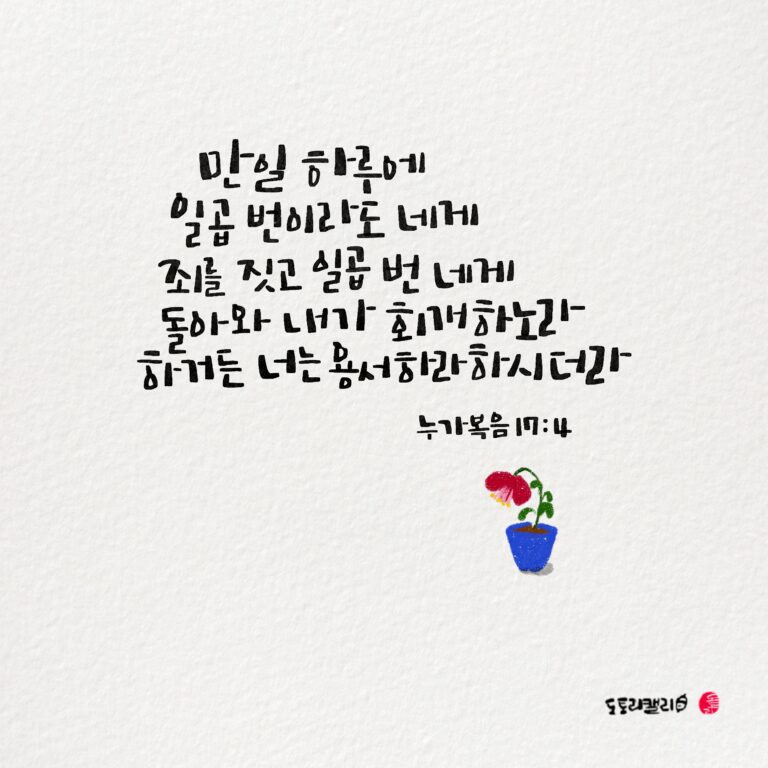 만일 하루에
일곱 번이라도 네게
죄를 짓고 일곱 번 네게
돌아와 내가 회개하노라
하거든 너는 용서하라 하시더라
누가복음 17:4
도토리캘리